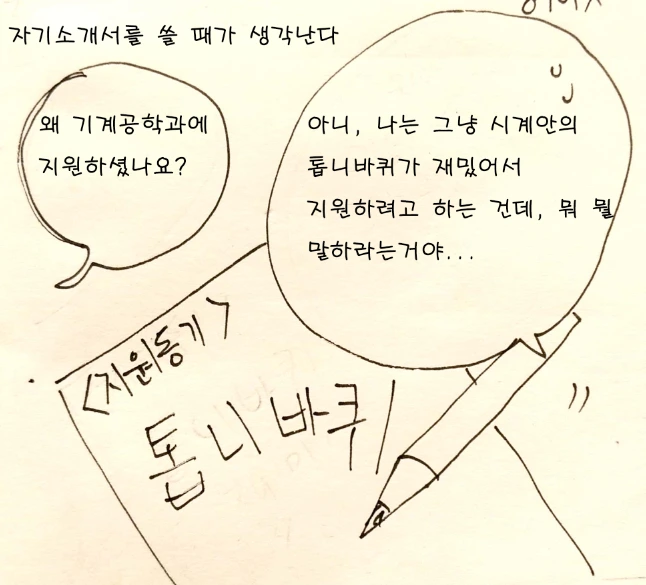 자기소개서를 쓸 때가 생각난다
왜 기계공학과에
지원하셨나요?
아니, 나는 그냥 시계안의
톱니바퀴가 재밌어서
지원하려고 하는 건데, 뭐 뭘
말하라는거야...
<지원동기>
톱니바퀴